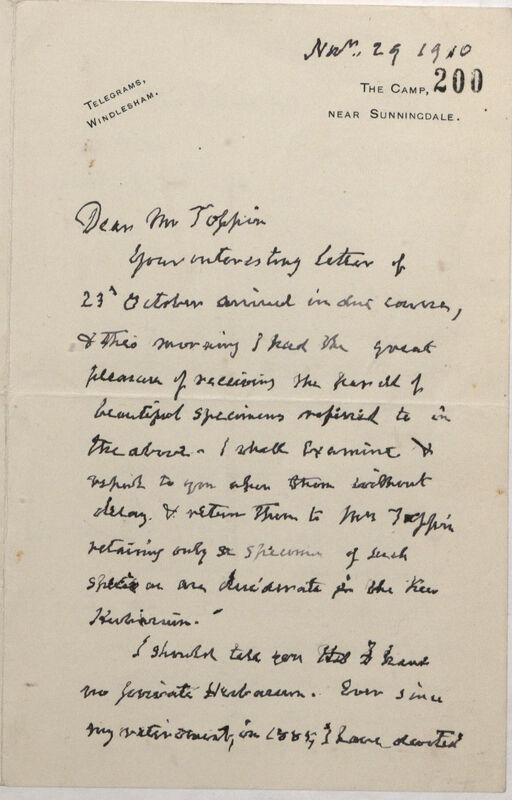 Novr. 29 1910
200
TELEGRAMS,
WINDLESHAM.
THE CAMP,
NEAR SUNNINGDALE.
Dear Mr Toppin
Your interesting letter of
23d October arrived in due course,
& this morning I had the great
pleasure of receiving the parcel of
beautiful specimens referred to in
the above. I shall examine &
report to you upon them without
delay, & return them to Mrs Toppin
retaining only a specimen of such
species as are in the Kew
Herbarium.
I should tell you that I have
no private Herbarium. Ever since
my retirement, in 1885, I have devoted